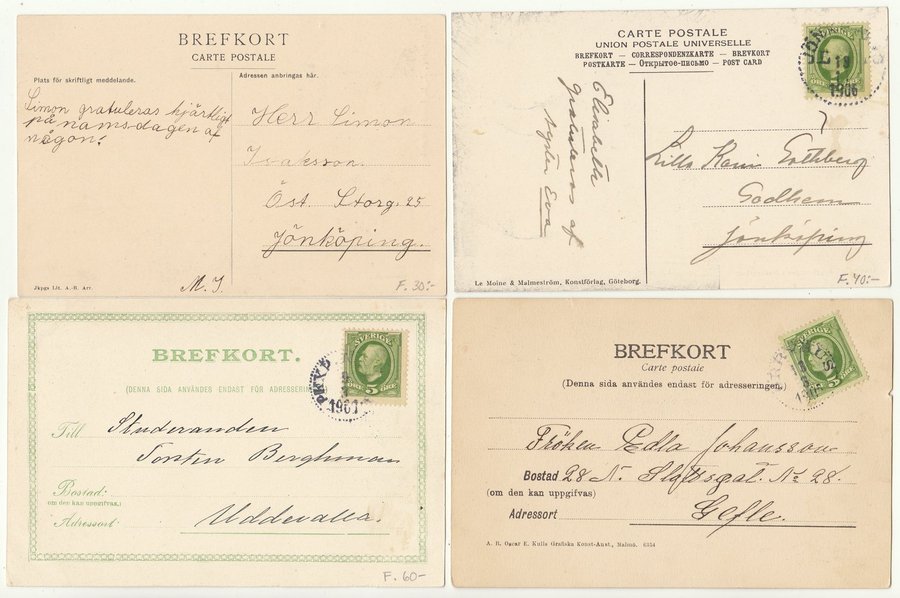 BREFKORT
CARTE POSTALE
Plats för skriftligt meddelande.
Adressen anbringas här.
Simon gratuleras hjärtligt
på namsdagen af
någon.
Herr Simon
Isaksson.
Öst. Storg. 25
Jönköping.
M. J.
Jkpgs Lit. A.-B. Arr.
F. 30:-
CARTE POSTALE
UNION POSTALE UNIVERSELLE
BREFKORT – CORRESPONDENZKARTE – BREVKORT
POSTKARTE – Открытое-письмо – POST CARD
1906
Elisabeth
gratuleras af
syster Ewa
Lilla Karin
Godhem
Jönköping
Le Moine & Malmeström, Konstförlag, Göteborg.
F. 40:-
BREFKORT.
(DENNA SIDA ANVÄNDES ENDAST FÖR ADRESSERING
SVERIGE
5
ÖRE
1901
Till Studeranden
Torsten Berghman
Bostad:
(om den kan uppgifvas.)
Adressort: Uddevalla.
F. 60-
BREFKORT
Carte postale
(Denna sida användes endast för adresseringen.)
SVERIGE
5
Fröken Edla Johansson
Bostad 28 N. Slottsgat. No 28.
(om den kan uppgifvas)
Adressort Gefle.
A. B. Oscar E. Kulls Grafiska Konst-Anst., Malmö. 6354